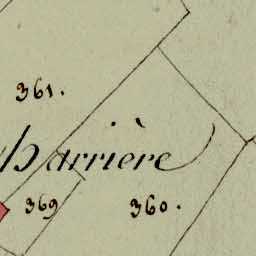 361.
Charrière
369
360.